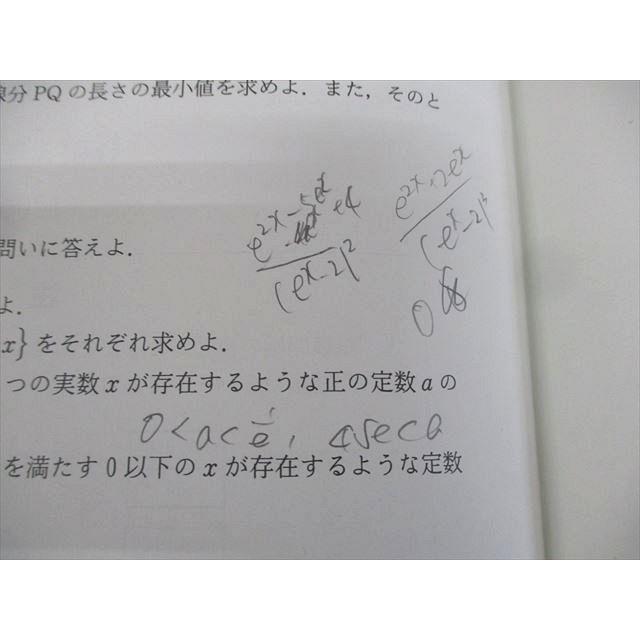 線分 PQ の長さの最小値を求めよ．また，そのと
問いに答えよ．
よ．
x} をそれぞれ求めよ．
つの実数 x が存在するような正の定数 a の
0 < a < 1/e ,
を満たす 0 以下の x が存在するような定数
(e^x-2)^2
e^2x
(e^x-2)^2